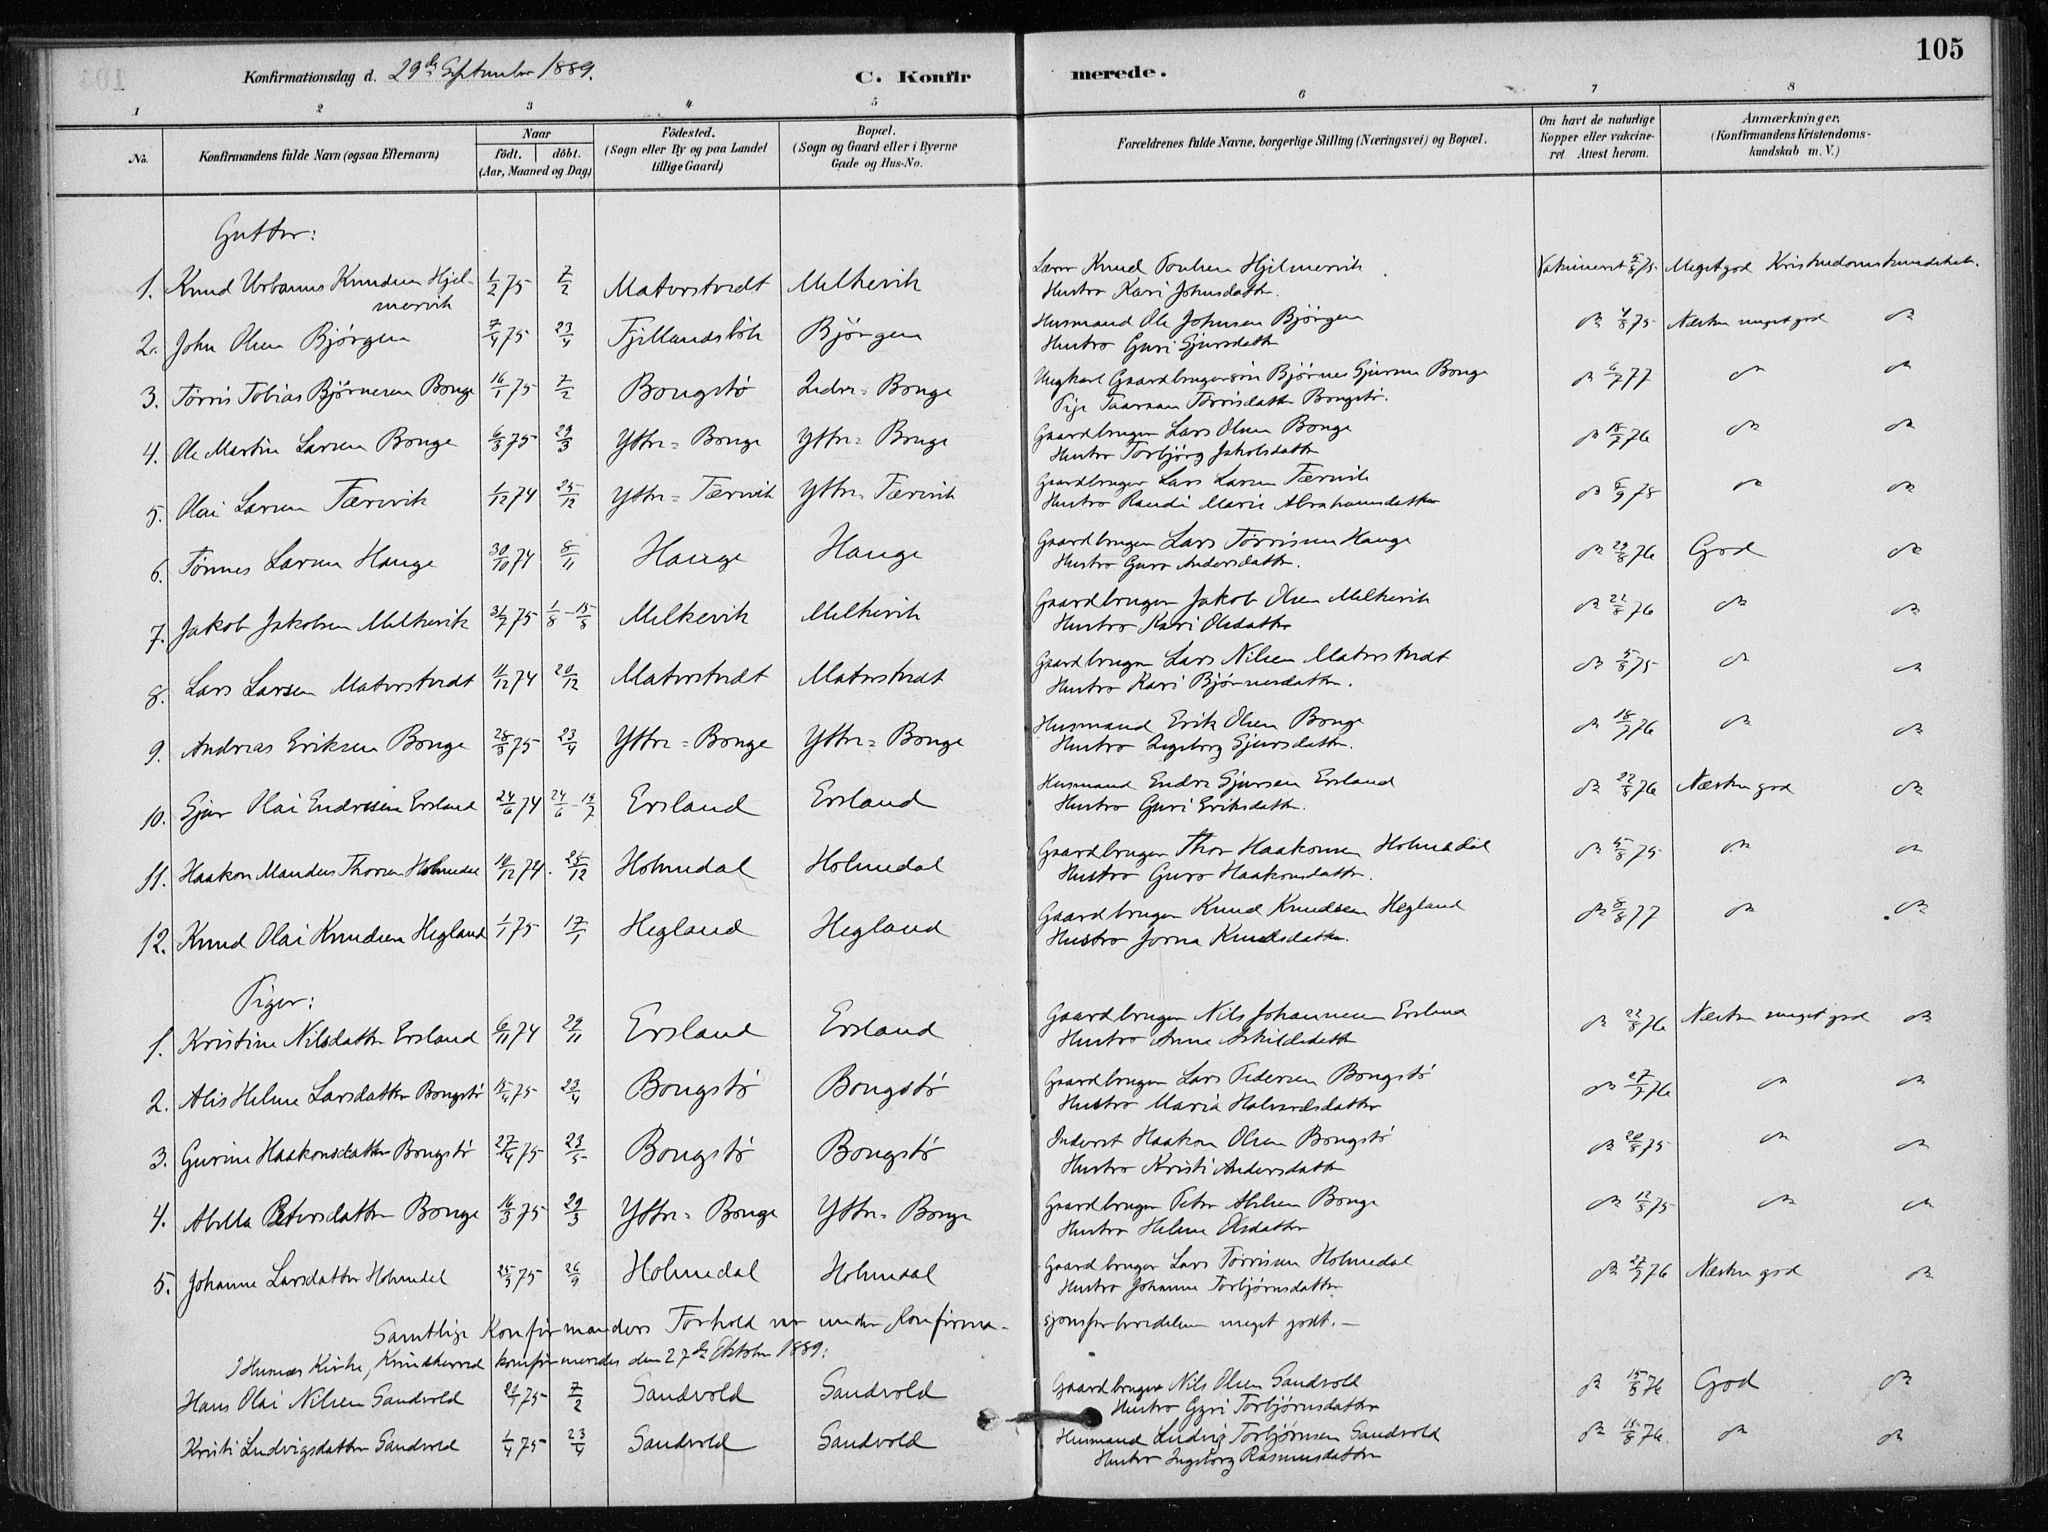 105
Konfirmationsdag d. 29de September 1889. C. Konfirmerede.
1 2 3 4 5 6 7 8
No. Konfirmandens fulde Navn (ogsaa Efternavn) Naar födt. döbt. (Aar, Maaned og Dag) Födested. (Sogn eller By og paa Landet tillige Gaard) Bopæl. (Sogn og Gaard eller i Byerne Gade og Hus-No. Forældrenes fulde Navne, borgerlige Stilling (Næringsvei) og Bopæl. Om havt de naturlige Kopper eller vaccineret Attest herom. Anmærkninger, (Konfirmandens Kristendomskundskab m. V.)
Gutter:
1. Knud Urbanus Knudsen Hjelmervik 1/2 75 7/2 Matorstvedt Melkevik Lærer Knud Hjelmervik Vakcineret 5/8 75 Megetgod Kristendomskundskab.
Hustro Kari Johnsdatter.
2. John Olsen Bjørgen 7/4 75 23/4 Bjørgen Husmand Ole Johnsen Bjørgen do 4/8 75 Næsten meget god do
Hustro Guri Sjursdatter
3. Tørris Tobias Bjørnesen Bonge 16/1 75 7/2 Bongstø Indre-Bonge Ungkarl Gaardbrugersøn Bjørnes Sjursen Bonge do 6/7 77 do do
Pige Tørrisdatter Bongstø.
4. Ole Martin Larsen Bonge 6/3 75 29/3 Yttre-Bonge Yttre-Bonge Gaardbruger Lars Olsen Bonge do 18/7 76 do do
Hustro Torbjørg Jakobsdatter
5. Olai Larsen Tærevik 1/12 74 25/12 Yttre-Tærevik Yttre-Tærevik Gaardbruger Lars Larsen Tærevik do 6/9 78 do do
Hustro Randi Marie Abrahamsdatter
6. Tønnes Larsen Hauge 30/10 74 8/11 Hauge Hauge Gaardbruger Lars Tørrissen Hauge do 29/8 76 God do
Hustro Guro Andersdatter.
7. Jakob Jakobsen Melkevik 31/7 75 1/8 - 15/8 Melkevik Melkevik Gaardbruger Jakob Olsen Melkevik do 22/8 76 do do
Hustro Kari Olsdatter
8. Lars Larsen Matorstvedt 11/12 74 20/12 Matorstvedt Matorstvedt Gaardbruger Lars Nilsen Matorstvedt do 5/8 75 do do
Hustro Kari Bjørnesdatter.
9. Andreas Eriksen Bonge 28/3 75 23/4 Yttre-Bonge Yttre-Bonge Husmand Erik Olsen Bonge do 18/7 76 do do
Hustro Ingeborg Sjursdatter.
10. Sjur Olai Endresen Ersland 24/6 74 24/6 - 12/7 Ersland Ersland Husmand Endre Sjursen Ersland do 22/8 76 Næsten god do
Hustro Guri Eriksdatter.
11. Haakon Mandius Thorsen Holmedal 10/12 74. 25/12 Holmedal Holmedal Gaardbruger Thor Haakonsen Holmedal do 5/8 75 do do
Hustro Guro Haakonsdatter.
12. Knud Olai Knudsen Hegland 1/1 75 17/1 Hegland Hegland Gaardbruger Knud Knudsen Hegland do 8/8 77 do do
Hustro Jorna Knudsdatter.
Piger:
1. Kristine Nilsdatter Ersland 6/11 74 29/11 Ersland Ersland Gaardbruger Nils Johannesen Ersland do 22/8 76 Næsten meget god do
Hustro Anna Askildsdatter
2. Alis Helene Larsdatter Bongstø 15/4 75 23/4 Bongstø Bongstø Gaardbruger Lars Pedersen Bongstø do 27/7 76 do do
Hustro Maria Halvorsdatter
3. Gurine Haakonsdatter Bongstø 27/4 75 23/5 Bongstø Bongstø Inderst Haakon Olsen Bongstø do 20/8 75 do do
Hustro Kristi Andersdatter
4. Abella Petersdatter Bonge 16/3 75 29/3 Yttre-Bonge Yttre-Bonge Gaardbruger Peter Bonge do 12/8 75 do do
Hustro Helene Olsdatter
5. Johanne Larsdatter Holmedal 25/9 75 26/9 Holmedal Holmedal Gaardbruger Lars Tørrissen Holmedal do 27/7 76 Næsten god do
Hustro Johanne Torbjørnsdatter
Samtlige Konfirmanders Forhold var under Konfirmasjonsforberedelsen meget godt. —
I Husnæs Kirke, Kvindherred konfirmeredes den 27de Oktober 1889:
Hans Olai Nilsen Sandvold 21/1 75 7/2 Sandvold Sandvold Gaardbruger Nils Olsen Sandvold do 15/8 76 God do
Hustro Gyri Torbjørnsdatter
Kristi Ludvigsdatter Sandvold 1/4 75 23/4 Sandvold Sandvold Husmand Ludvig Torbjørnsen Sandvold do 15/8 76. do do
Hustro Ingeborg Rasmusdatter